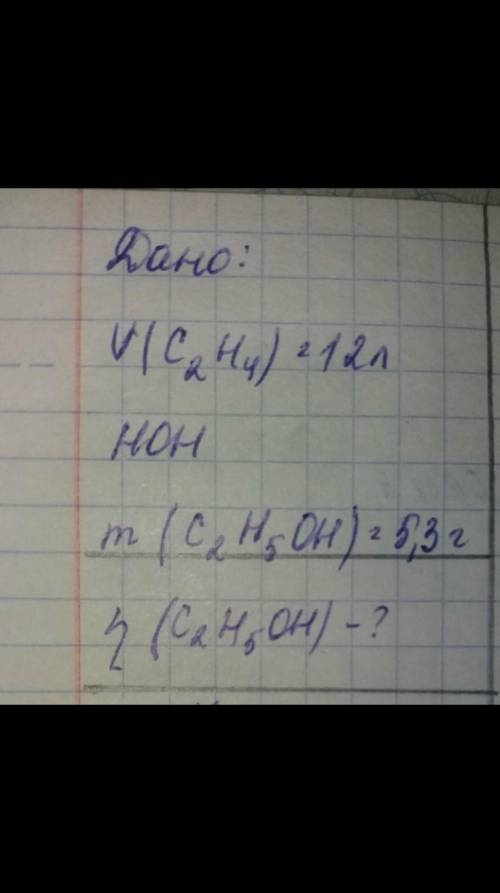 Дано:
V(C₂H₄) = 12л
HOH
m (C₂H₅OH) = 5,3 г
η (C₂H₅OH) - ?